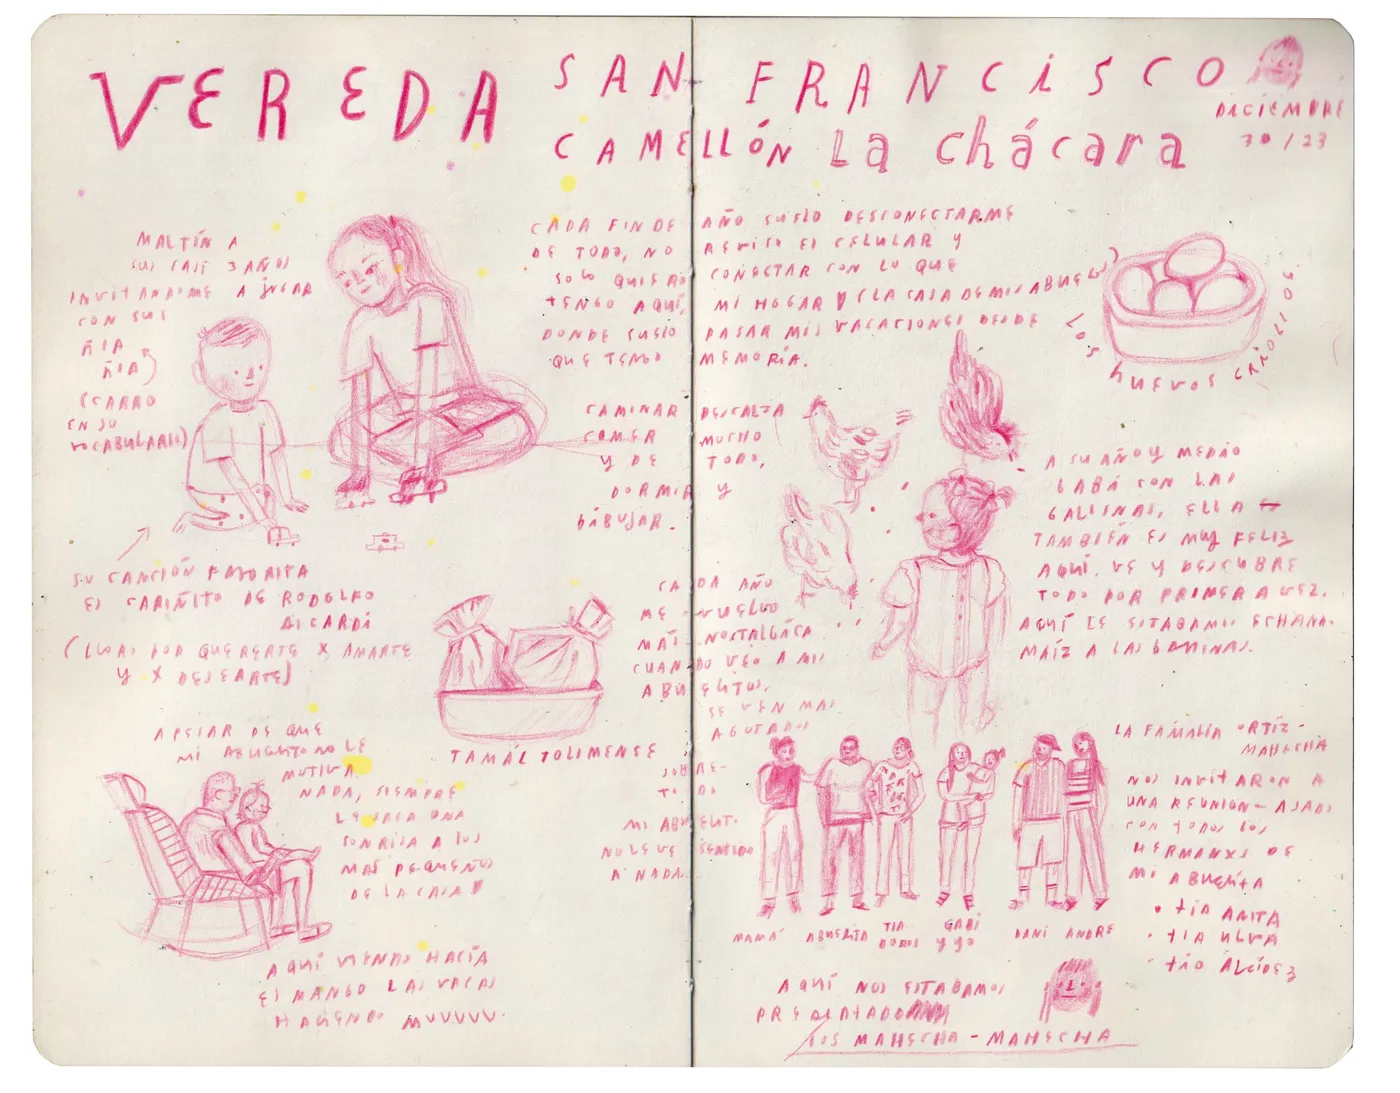 VEREDA SAN FRANCISCO
CAMELLÓN La chácara
DICIEMBRE
30/23
MALTÍN A
SUS CASI 3 AÑOS
INVITANDOME A JUGAR
CON SUS
ÑIA
ÑIA
(CARRO
EN SU
VOCABULARIO)
SU CANCIÓN FAVORITA
ES CARIÑITO DE RODOLFO
AICARDÍ
(LLORAS POR QUERERTE X AMARTE
Y X DESEARTE)
CADA FIN DE AÑO SUELO DESCONECTARME
DE TODO, NO REVISO EL CELULAR Y
SOLO QUIERO CONECTAR CON LO QUE
TENGO AQUÍ, MI HOGAR Y (LA CASA DE MIS ABUELOS)
DONDE SUELO PASAR MIS VACACIONES DESDE
QUE TENGO MEMORIA.
CAMINAR DESCALZA
COMER MUCHO
Y DE TODO,
DORMIR Y
DIBUJAR.
LOS HUEVOS CRIOLLOS.
A SU AÑO Y MEDIO
GABI CON LAS
GALLINAS, ELLA
TAMBIÉN ES MUY FELIZ
AQUÍ. VE Y DESCUBRE
TODO POR PRIMERA VEZ.
AQUÍ LE ESTABAMOS ECHANDO
MAÍZ A LAS GALLINAS.
CADA AÑO
ME VUELVO
MÁS NOSTALGÍCA
CUANDO VEO A MIS
ABUELITOS.
SE VEN MAS
AGOTADOS
SOBRE-
TODO
MI ABUELIT.
NO LE VE SENTIDO
A NADA.
TAMÁL TOLIMENSE
APESAR DE QUE
MI ABUELITO NO LE
MOTIVA
NADA, SIEMPRE
LE SACA UNA
SONRISA A LOS
MAS PEQUEÑOS
DE LA CASA
AQUÍ VIENDO HACÍA
EL MANGO LAS VACAS
HACIENDO MUUUUU.
LA FAMILIA ORTIZ-
MAHECHA
NOS INVITARON A
UNA REUNIÓN-ASADO
CON TODOS LOS
HERMANXS DE
MI ABUELITA
• TIA ANITA
• TIA ULVA
• TÍO ALCIDEZ
MAMÁ ABUELITA TIA DORIS GABI Y YO DANI ANDRE
AQUÍ NOS ESTABAMOS
PRESENTADO
LOS MAHECHA-MAHECHA